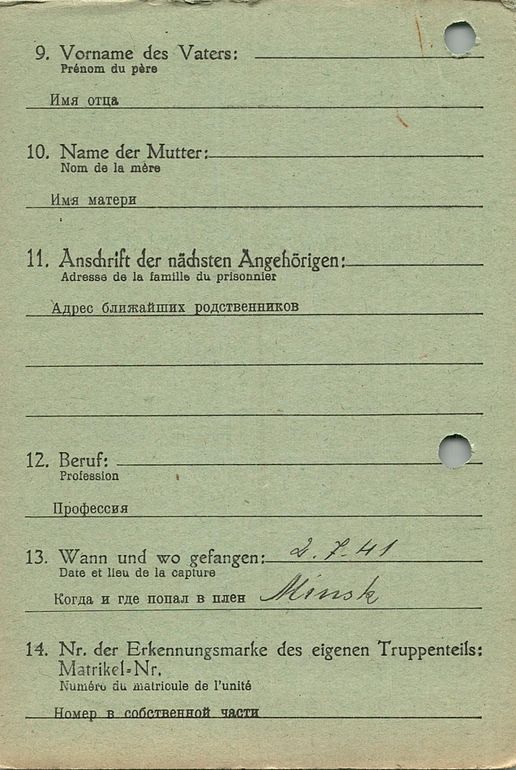 9. Vorname des Vaters:
Prénom du père
Имя отца
10. Name der Mutter:
Nom de la mère
Имя матери
11. Anschrift der nächsten Angehörigen:
Adresse de la famille du prisonnier
Адрес ближайших родственников
12. Beruf:
Profession
Профессия
13. Wann und wo gefangen: 2.7.41
Date et lieu de la capture
Когда и где попал в плен Minsk
14. Nr. der Erkennungsmarke des eigenen Truppenteils:
Matrikel-Nr.
Numéro du matricule de l'unité
Номер в собственной части